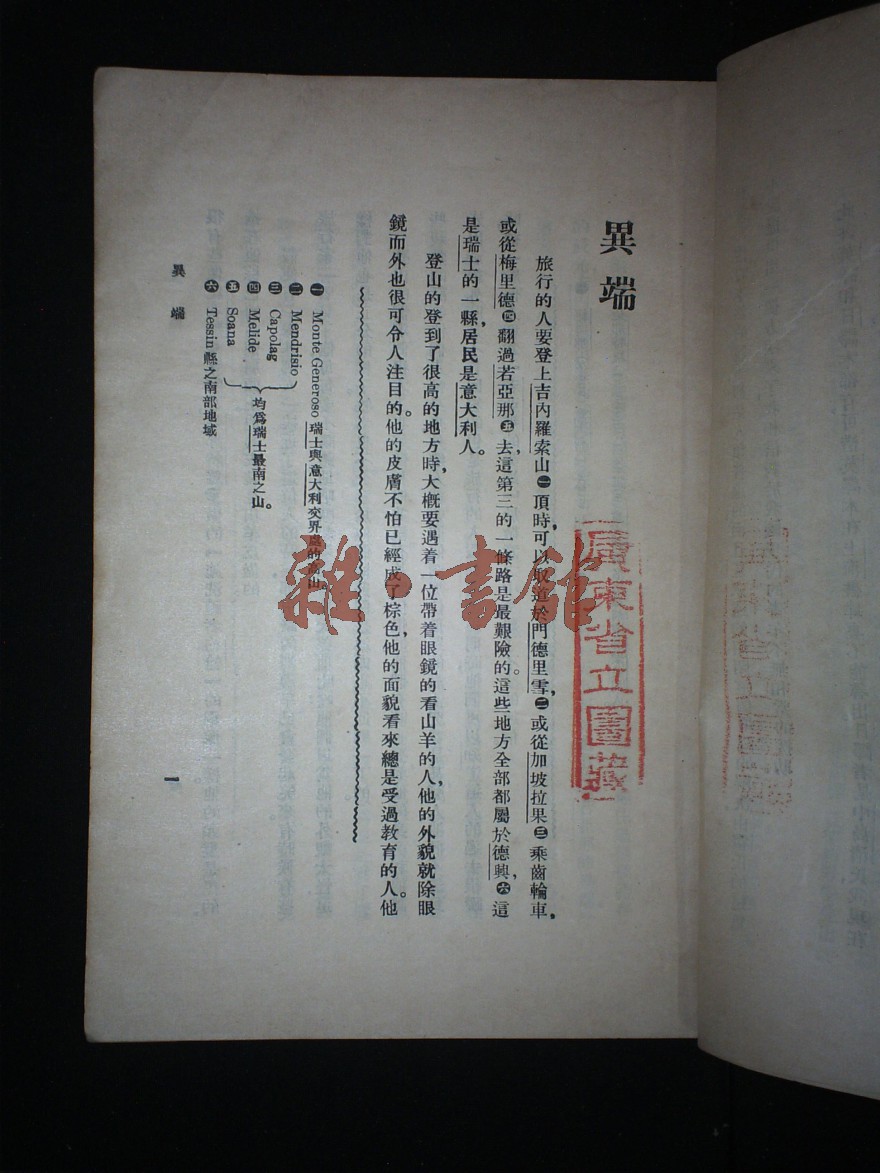 異端
旅行的人要登上吉內羅索山㊀頂時,可以取道於門德里雪,㊁或從加坡拉果㊂乘齒輪車,
或從梅里德㊃翻過若亞那㊄去,這第三的一條路是最艱險的。這些地方全部都屬於德興,㊅這
是瑞士的一縣,居民是意大利人。
登山的登到了很高的地方時,大概要遇着一位帶着眼鏡的看山羊的人,他的外貌就除眼
鏡而外也很可令人注目的。他的皮膚不怕已經成了棕色,他的面貌看來總是受過教育的人。他
㊀ Monte Generoso 瑞士與意大利交界處的高山
㊁ Mendrisio
㊂ Capolag
㊃ Melide
㊄ Soana
均爲瑞士最南之山。
㊅ Tessin 縣之南部地域
異端
一
廣東省立圖藏
雜·書館